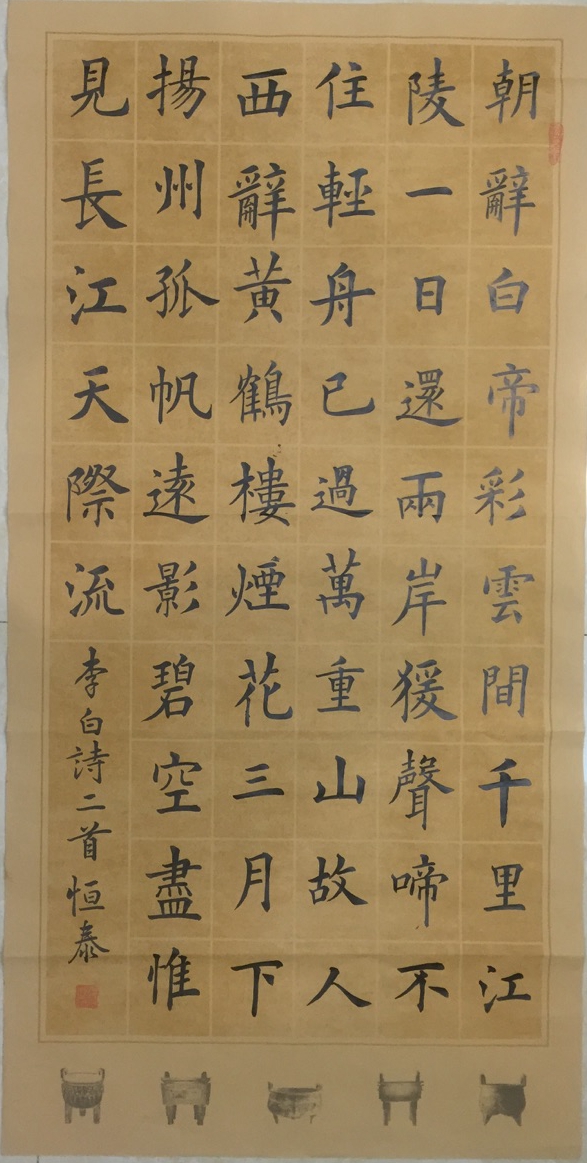 朝辭白帝彩雲間千里江
陵一日還兩岸猨聲啼不
住輕舟已過萬重山故人
西辭黃鶴樓煙花三月下
揚州孤帆遠影碧空盡惟
見長江天際流
李白詩二首恒泰